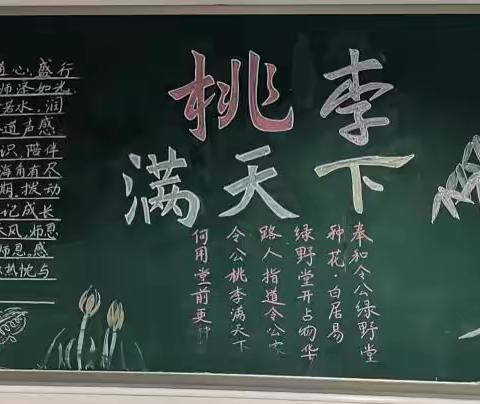 桃李
满天下
奉和令公绿野堂
种花·白居易
绿野堂开占物华
路人指道令公
令公桃李满天下
何用堂前更
心，盛行
师泽如光
若水，润
道声感
识，陪伴
海角有尽
期，拨动
记成长
风，师恩
师恩。感
热忱与